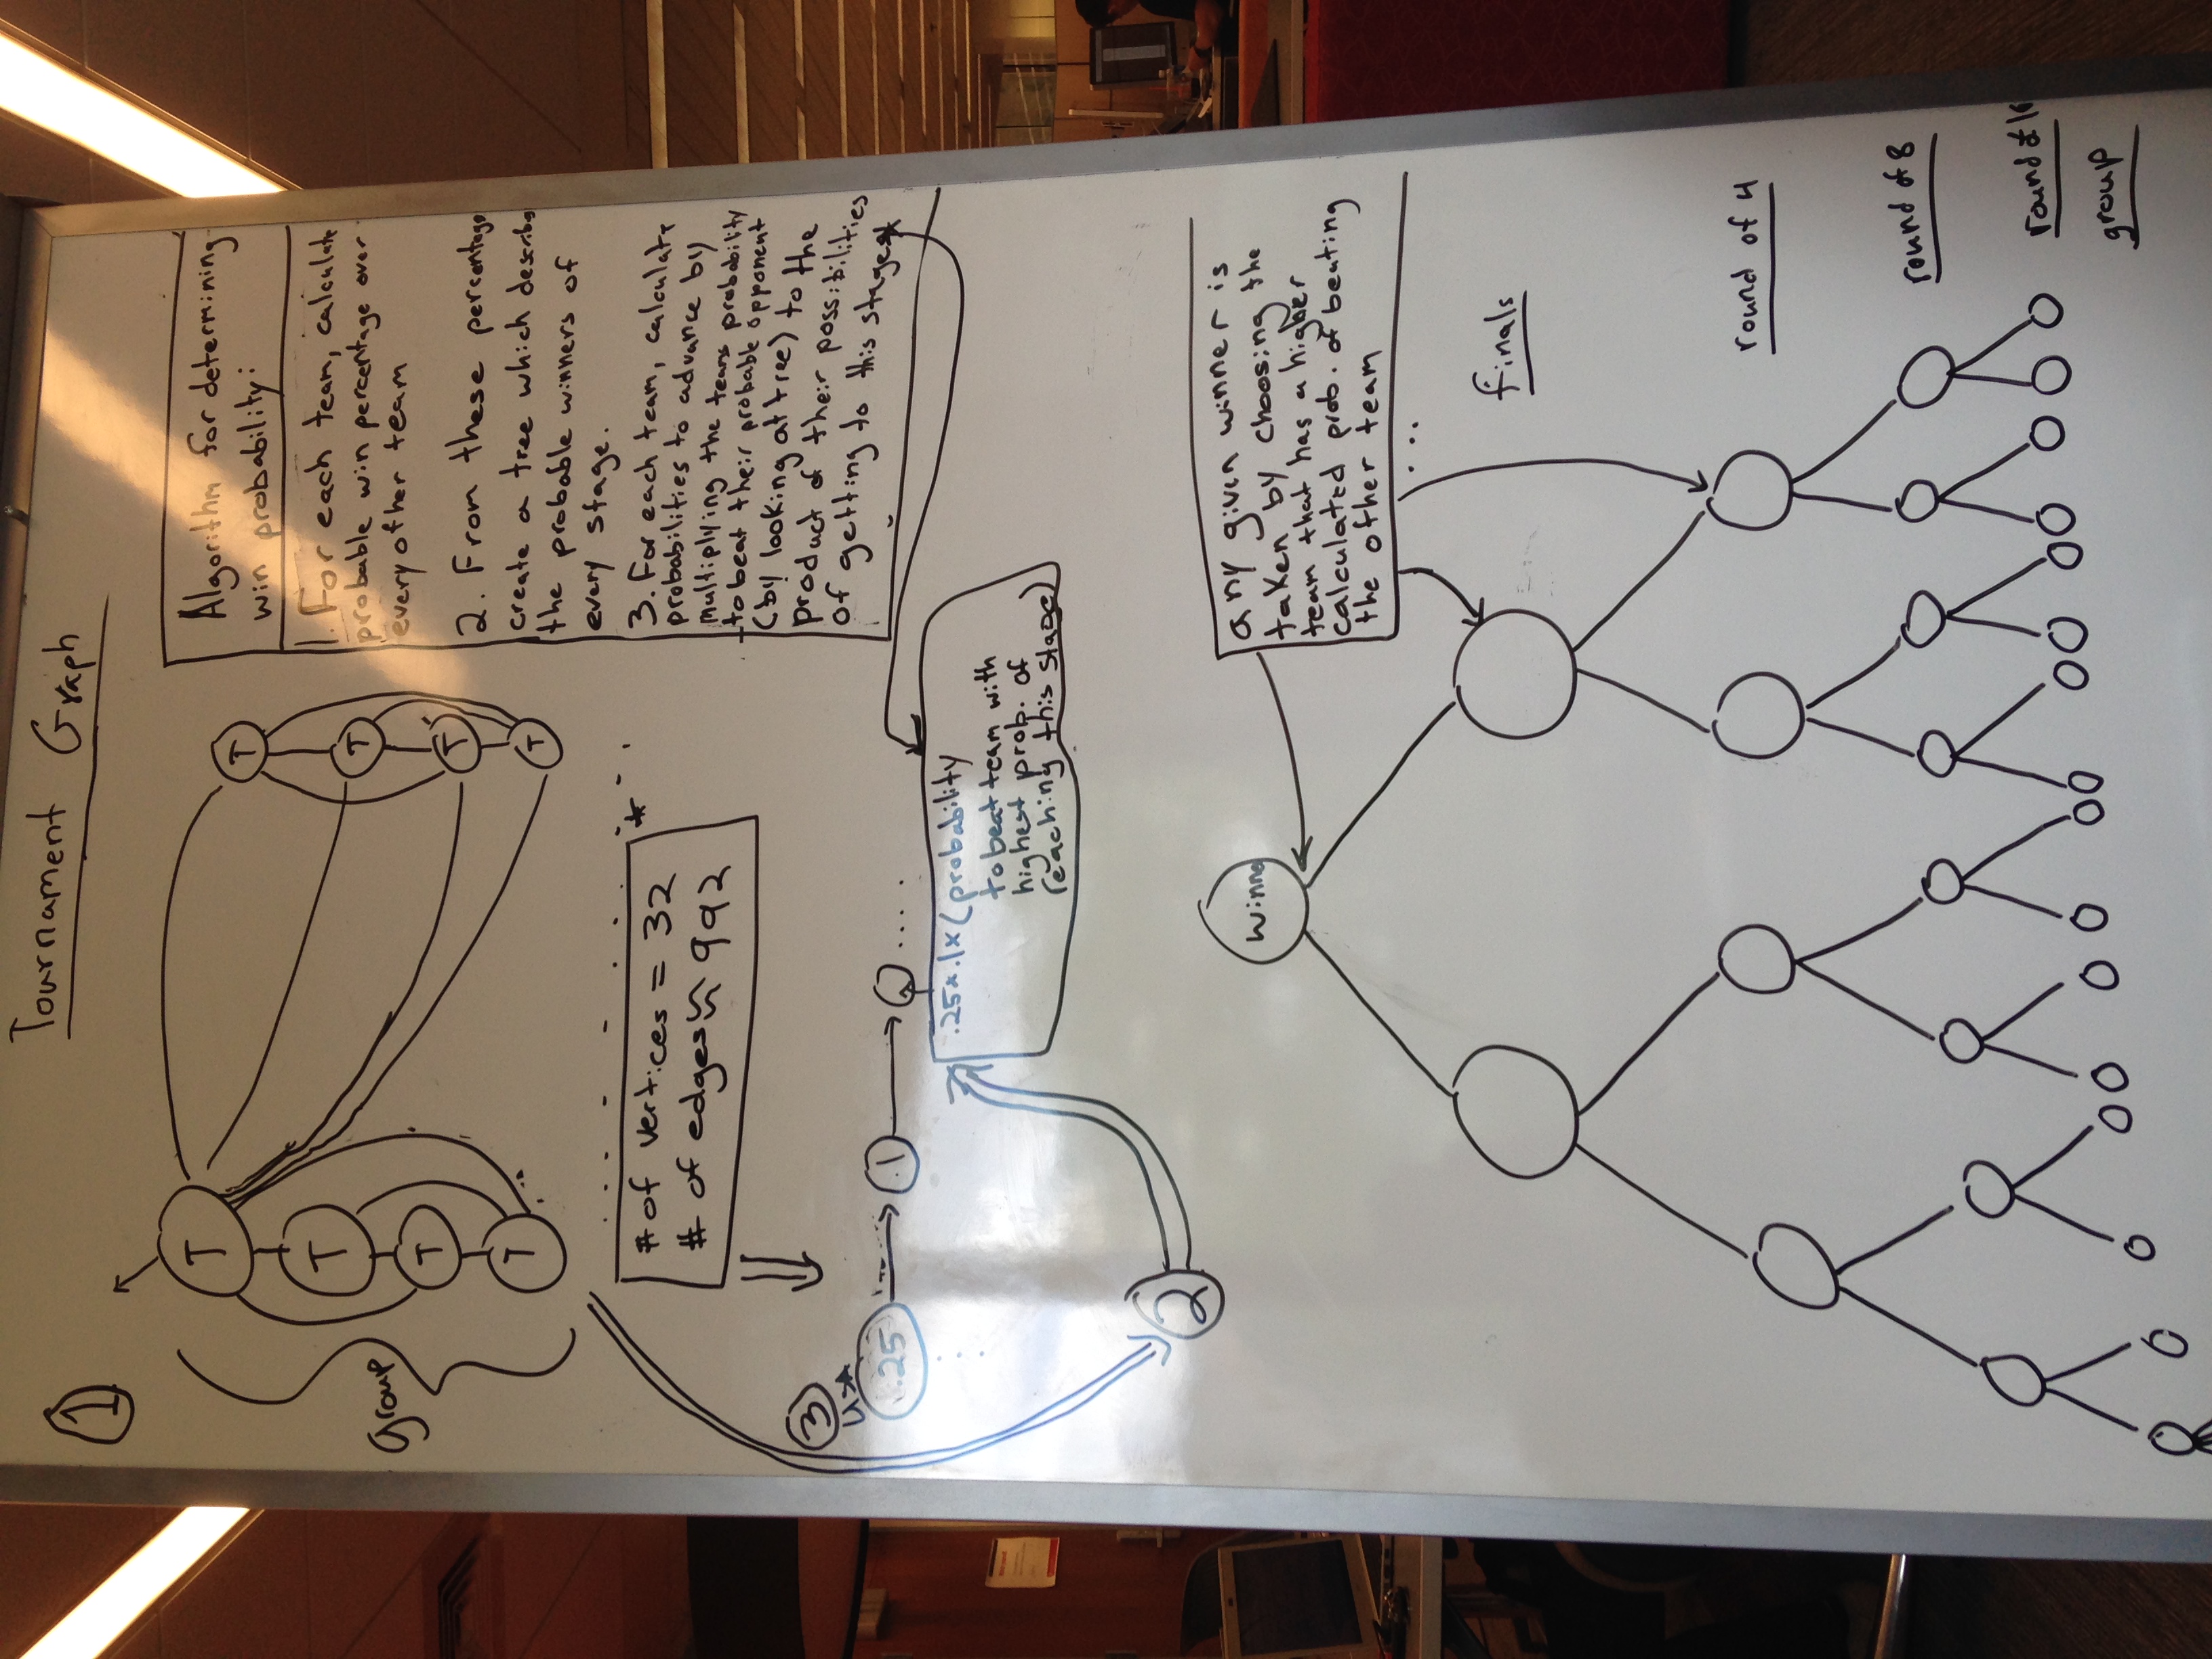 Tournament Graph
1
T
T
T
T
group
T
T
T
T
Algorithm for determining
win probability:
1. For each team, calculate
probable win percentage over
every other team
2. From these percentage
create a tree which describes
the probable winners of
every stage.
3. For each team, calculate
probabilities to advance by
multiplying the teams probability
to beat their probable opponent
(by looking at tree) to the
product of their possibilities
of getting to this stage
# of vertices = 32
# of edges ≈ 992
*
3
.25
.1
....
.25 x .1 x (probability
to beat team with
highest prob. of
reaching this stage)
2
Winne
any given winner is
taken by choosing the
team that has a higher
calculated prob. of beating
the other team
...
finals
round of 4
round of 8
round of 16
group